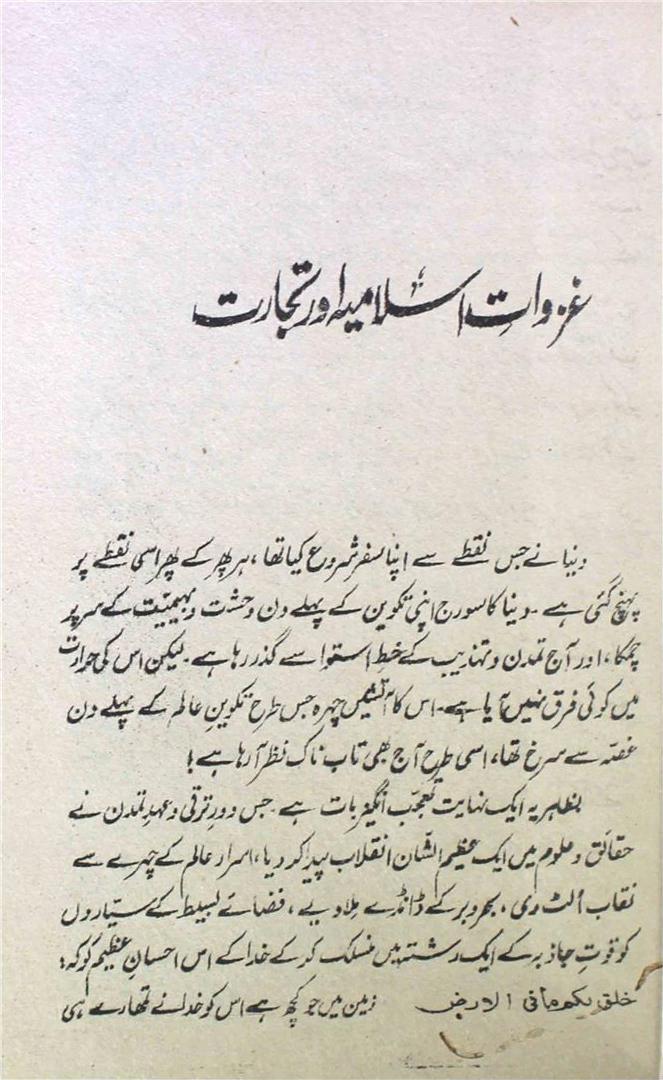 غزواتِ اسلامیہ اور تجارت
دنیا نے جس نقطے سے اپنا سفر شروع کیا تھا، ہر پھر کے پھر اسی نقطے پر
پہنچ گئی ہے۔ دنیا کا سورج اپنی تکوین کے پہلے دن وحشت و بہیمیّت کے سر پر
چمکا، اور آج تمدن و تہذیب کے خط استوا سے گذر رہا ہے۔ لیکن اس کی حرارت
میں کوئی فرق نہیں آیا ہے۔ اس کا آتشیں چہرہ جس طرح تکوینِ عالم کے پہلے دن
غصّہ سے سرخ تھا، اسی طرح آج بھی تاب ناک نظر آ رہا ہے!
بظاہر یہ ایک نہایت تعجّب انگیز بات ہے۔ جس دورِ ترقی و عہدِ تمدن نے
حقائق و علوم میں ایک عظیم الشّان انقلاب پیدا کر دیا، اسرار عالم کے چہرے سے
نقاب اُلٹ دی، بحر و بر کے ڈانڈے مِلا دیے، فضائے بسیط کے ستیاروں
کو قوتِ جاذبہ کے ایک رشتہ میں منسلک کر کے خدا کے اس احسانِ عظیم کو کہ:
خلق لکم مافی الارض زمین میں جو کچھ ہے اس کو خدا نے تمھارے ہی